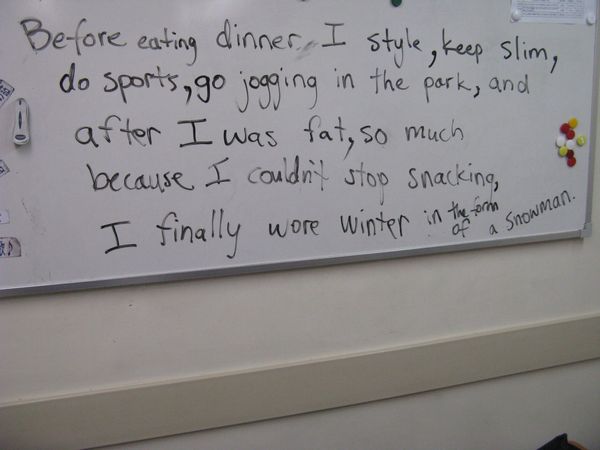 Before eating dinner I style, keep slim,
do sports, go jogging in the park, and
after I was fat, so much
because I couldn't stop snacking,
I finally wore winter in the form of a snowman.